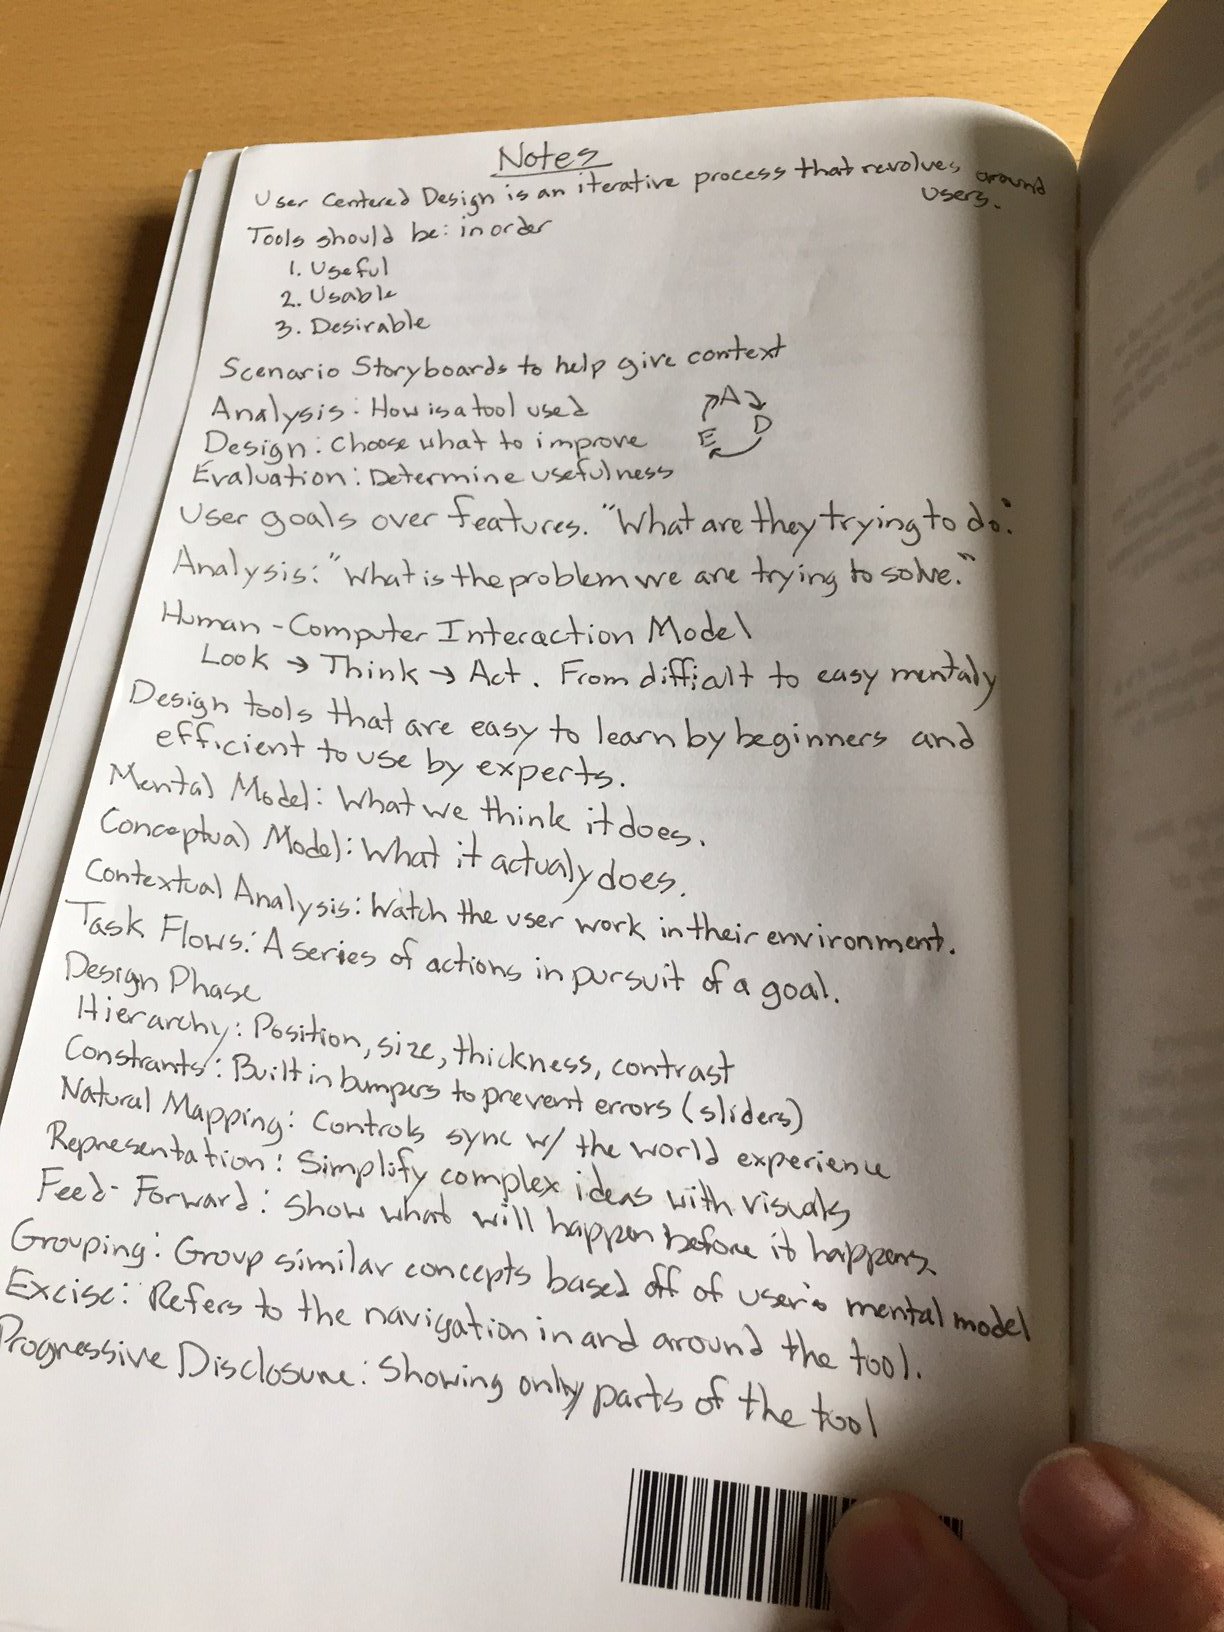 Notes
User Centered Design is an iterative process that revolves around
users.
Tools should be: in order
1. Useful
2. Usable
3. Desirable
Scenario Storyboards to help give context
Analysis: How is a tool used
Design: Choose what to improve
Evaluation: Determine usefulness
A
D
E
User goals over features. "What are they trying to do."
Analysis: "What is the problem we are trying to solve."
Human-Computer Interaction Model
Look → Think → Act. From difficult to easy mentaly
Design tools that are easy to learn by beginners and
efficient to use by experts.
Mental Model: What we think it does.
Conceptual Model: What it actualy does.
Contextual Analysis: Watch the user work in their environment.
Task Flows: A series of actions in pursuit of a goal.
Design Phase
Hierarchy: Position, size, thickness, contrast
Constrants: Built in bumpers to prevent errors (sliders)
Natural Mapping: Controls sync w/ the world experience
Representation: Simplify complex ideas with visuals
Feed-Forward: Show what will happen before it happens.
Grouping: Group similar concepts based off of user's mental model
Excise: Refers to the navigation in and around the tool.
Progressive Disclosure: Showing only parts of the tool